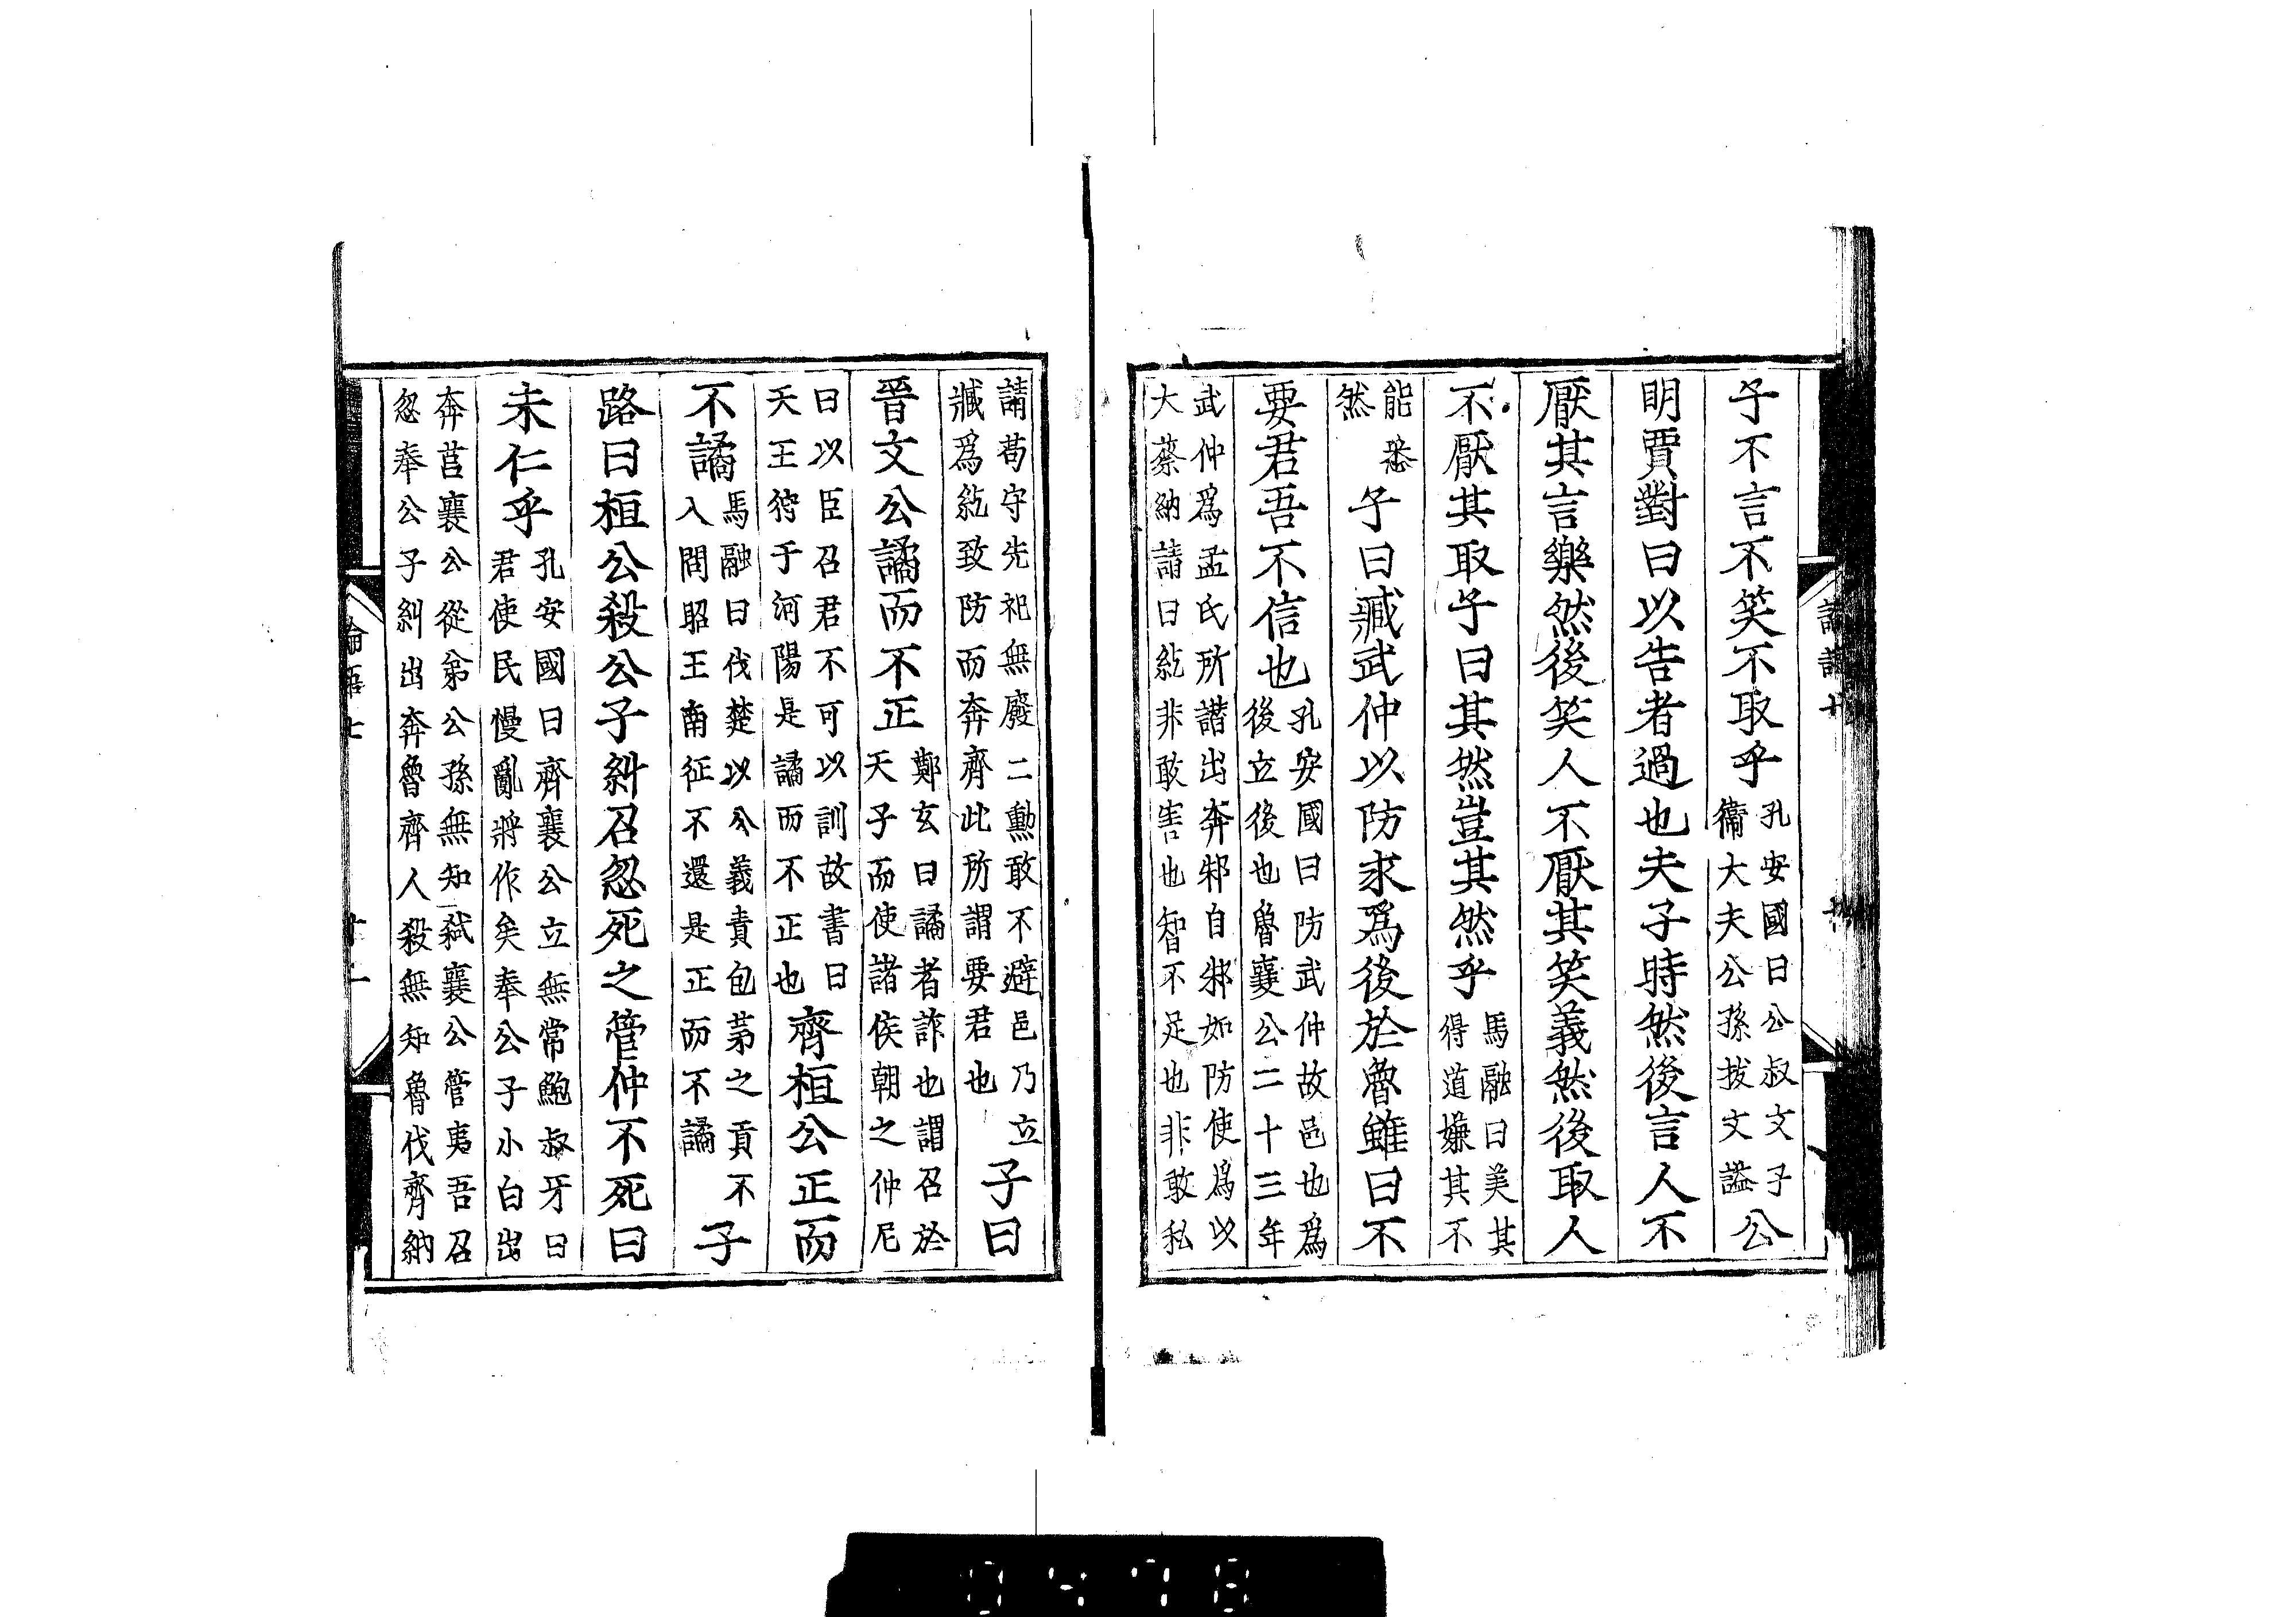 子不言不笑不取乎孔安國曰公叔文子
衞大夫公孫拔文謚公
明賈對曰以告者過也夫子時然後言人不
厭其言樂然後笑人不厭其笑義然後取人
不厭其取子曰其然豈其然乎馬融曰美其
得道嫌其不
能悉
然子曰臧武仲以防求爲後於魯雖曰不
要君吾不信也孔安國曰防武仲故邑也爲
後立後也魯襄公二十三年
武仲爲孟氏所譖出奔邾自邾如防使爲以
大蔡納請曰紇非敢害也智不足也非敢私
請苟守先祀無廢二勳敢不避邑乃立
臧爲紇致防而奔齊此所謂要君也子曰
晉文公譎而不正鄭玄曰譎者詐也謂召於
天子而使諸侯朝之仲尼
曰以臣召君不可以訓故書曰
天王狩于河陽是譎而不正也齊桓公正而
不譎馬融曰伐楚以公義責包茅之貢不
入問昭王南征不還是正而不譎子
路曰桓公殺公子糾召忽死之管仲不死曰
未仁乎孔安國曰齊襄公立無常鮑叔牙曰
君使民慢亂將作矣奉公子小白出
奔莒襄公從弟公孫無知弑襄公管夷吾召
忽奉公子糾出奔魯齊人殺無知魯伐齊納
論語七
十一
0478